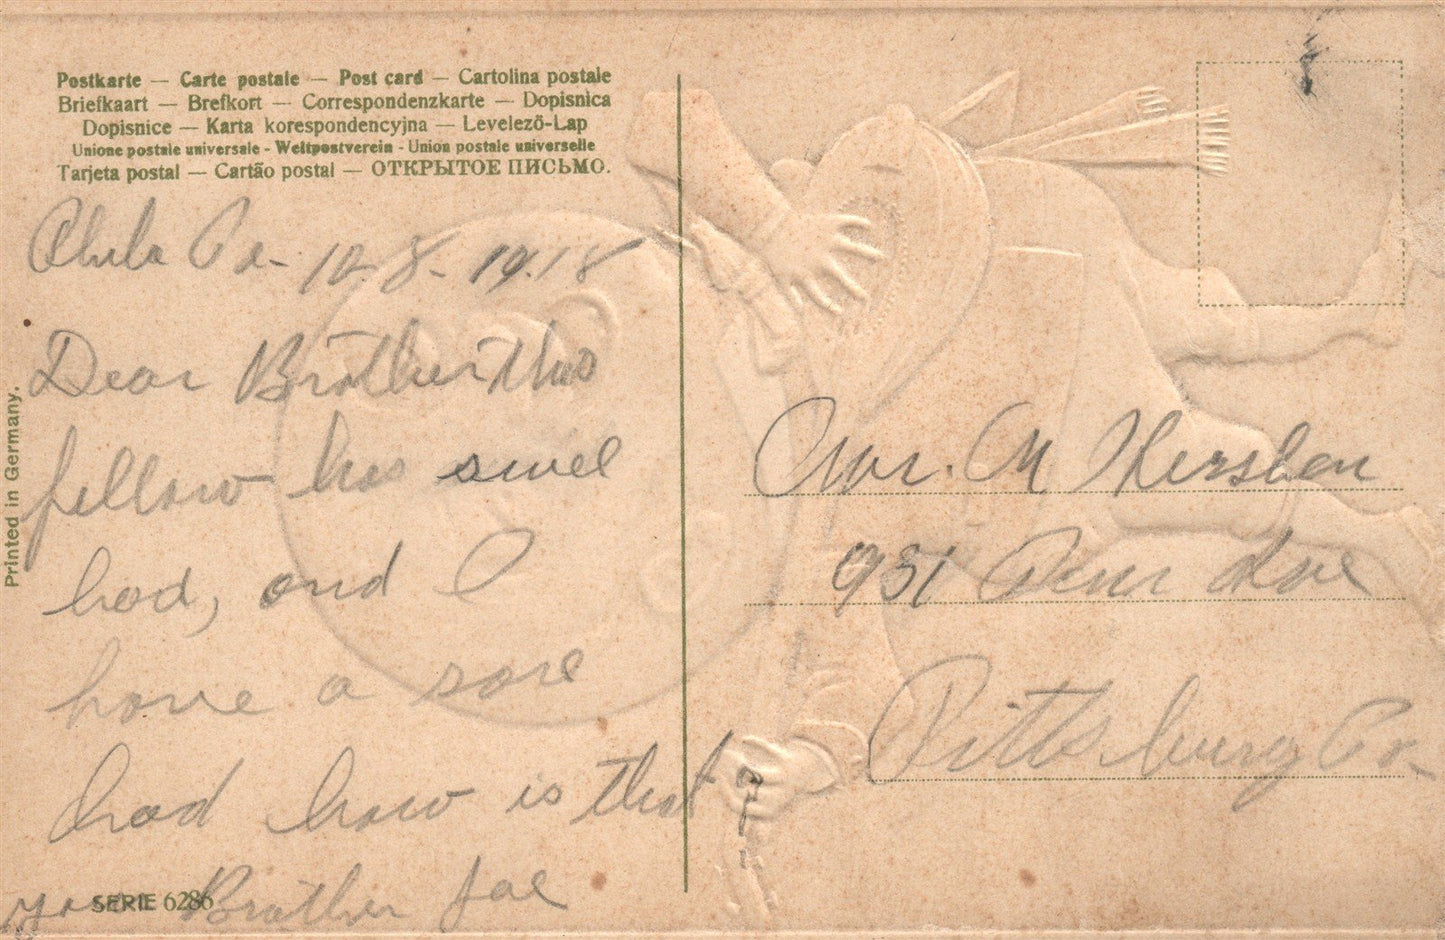 Postkarte — Carte postale — Post card — Cartolina postale
Briefkaart — Brefkort — Correspondenzkarte — Dopisnica
Dopisnice — Karta korespondencyjna — Levelezö-Lap
Unione postale universale - Weltpostverein - Union postale universelle
Tarjeta postal — Cartão postal — ОТКРЫТОЕ ПИСЬМО.
Phila Pa - 12.8 - 1918
Dear Brother this
fellow has swel
had, and I
have a sore
had how is that
your Brother Joe
Printed in Germany.
SERIE 6286
Mr. M Hershen
931 Penn Ave
Pittsburg Pa.